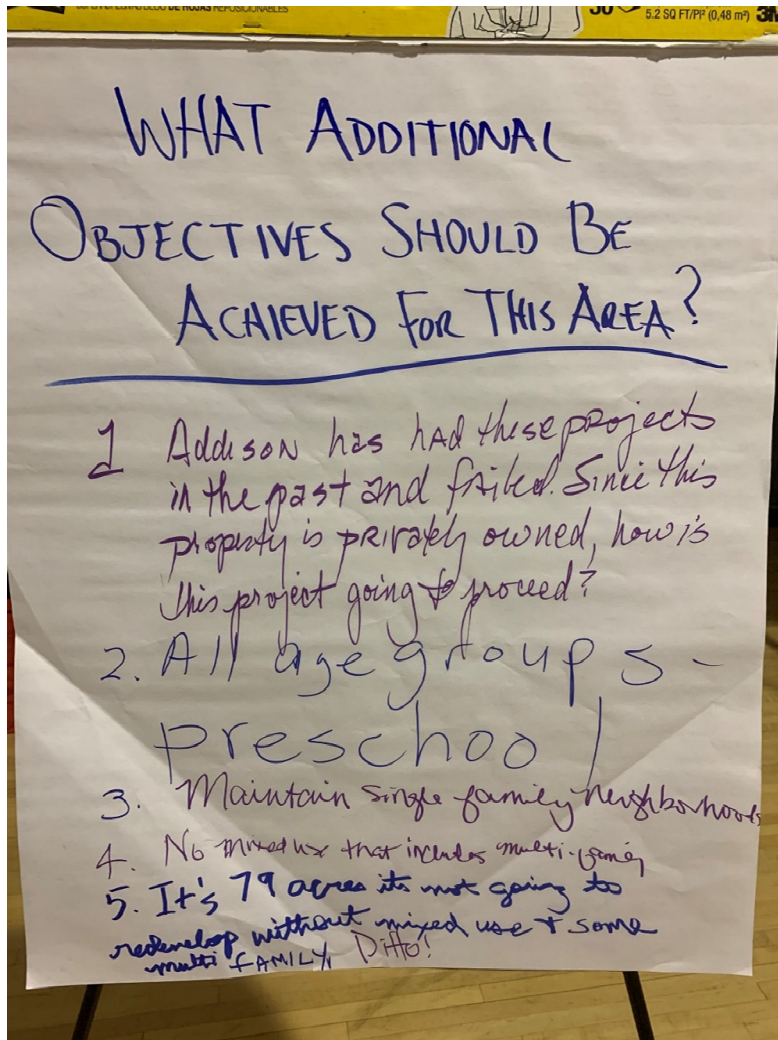 DE HOJAS REPOSICIONABLES
5.2 SQ FT/PI² (0,48 m²) 3M
WHAT ADDITIONAL
OBJECTIVES SHOULD BE
ACHIEVED FOR THIS AREA?
1 Addison has had these projects
in the past and failed. Since this
property is privately owned, how is
this project going to proceed?
2. All age groups -
preschool
3. Maintain single family neighborhoods
4. No mixed use that includes multi-family
5. It's 79 acres its not going to
redevelop without mixed use + some
multi FAMILY. Ditto!